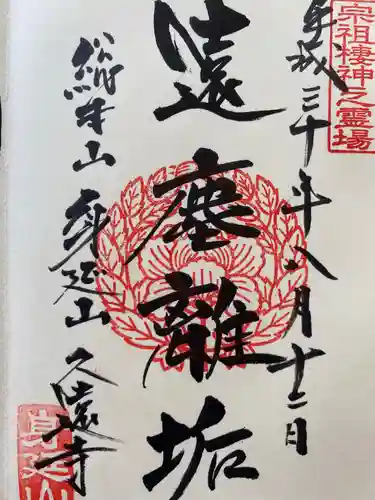 宗祖棲神之霊場
平成三十年八月十二日
遠塵離垢
総本山 身延山 久遠寺
身延山